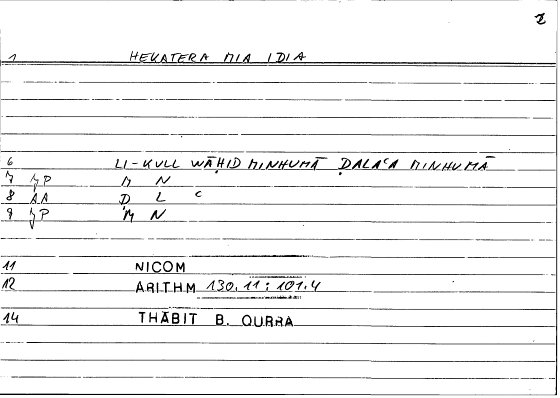 2
1 HEKATERA MIA IDIA
6 LI-KULL WĀḤID MINHUMĀ ḌALAʿA MINHUMĀ
7 JP M N
8 AA Ḍ L ʿ
9 JP M N
11 NICOM
12 ARITHM 130.11 : 101.4
14 THĀBIT B. QURRA